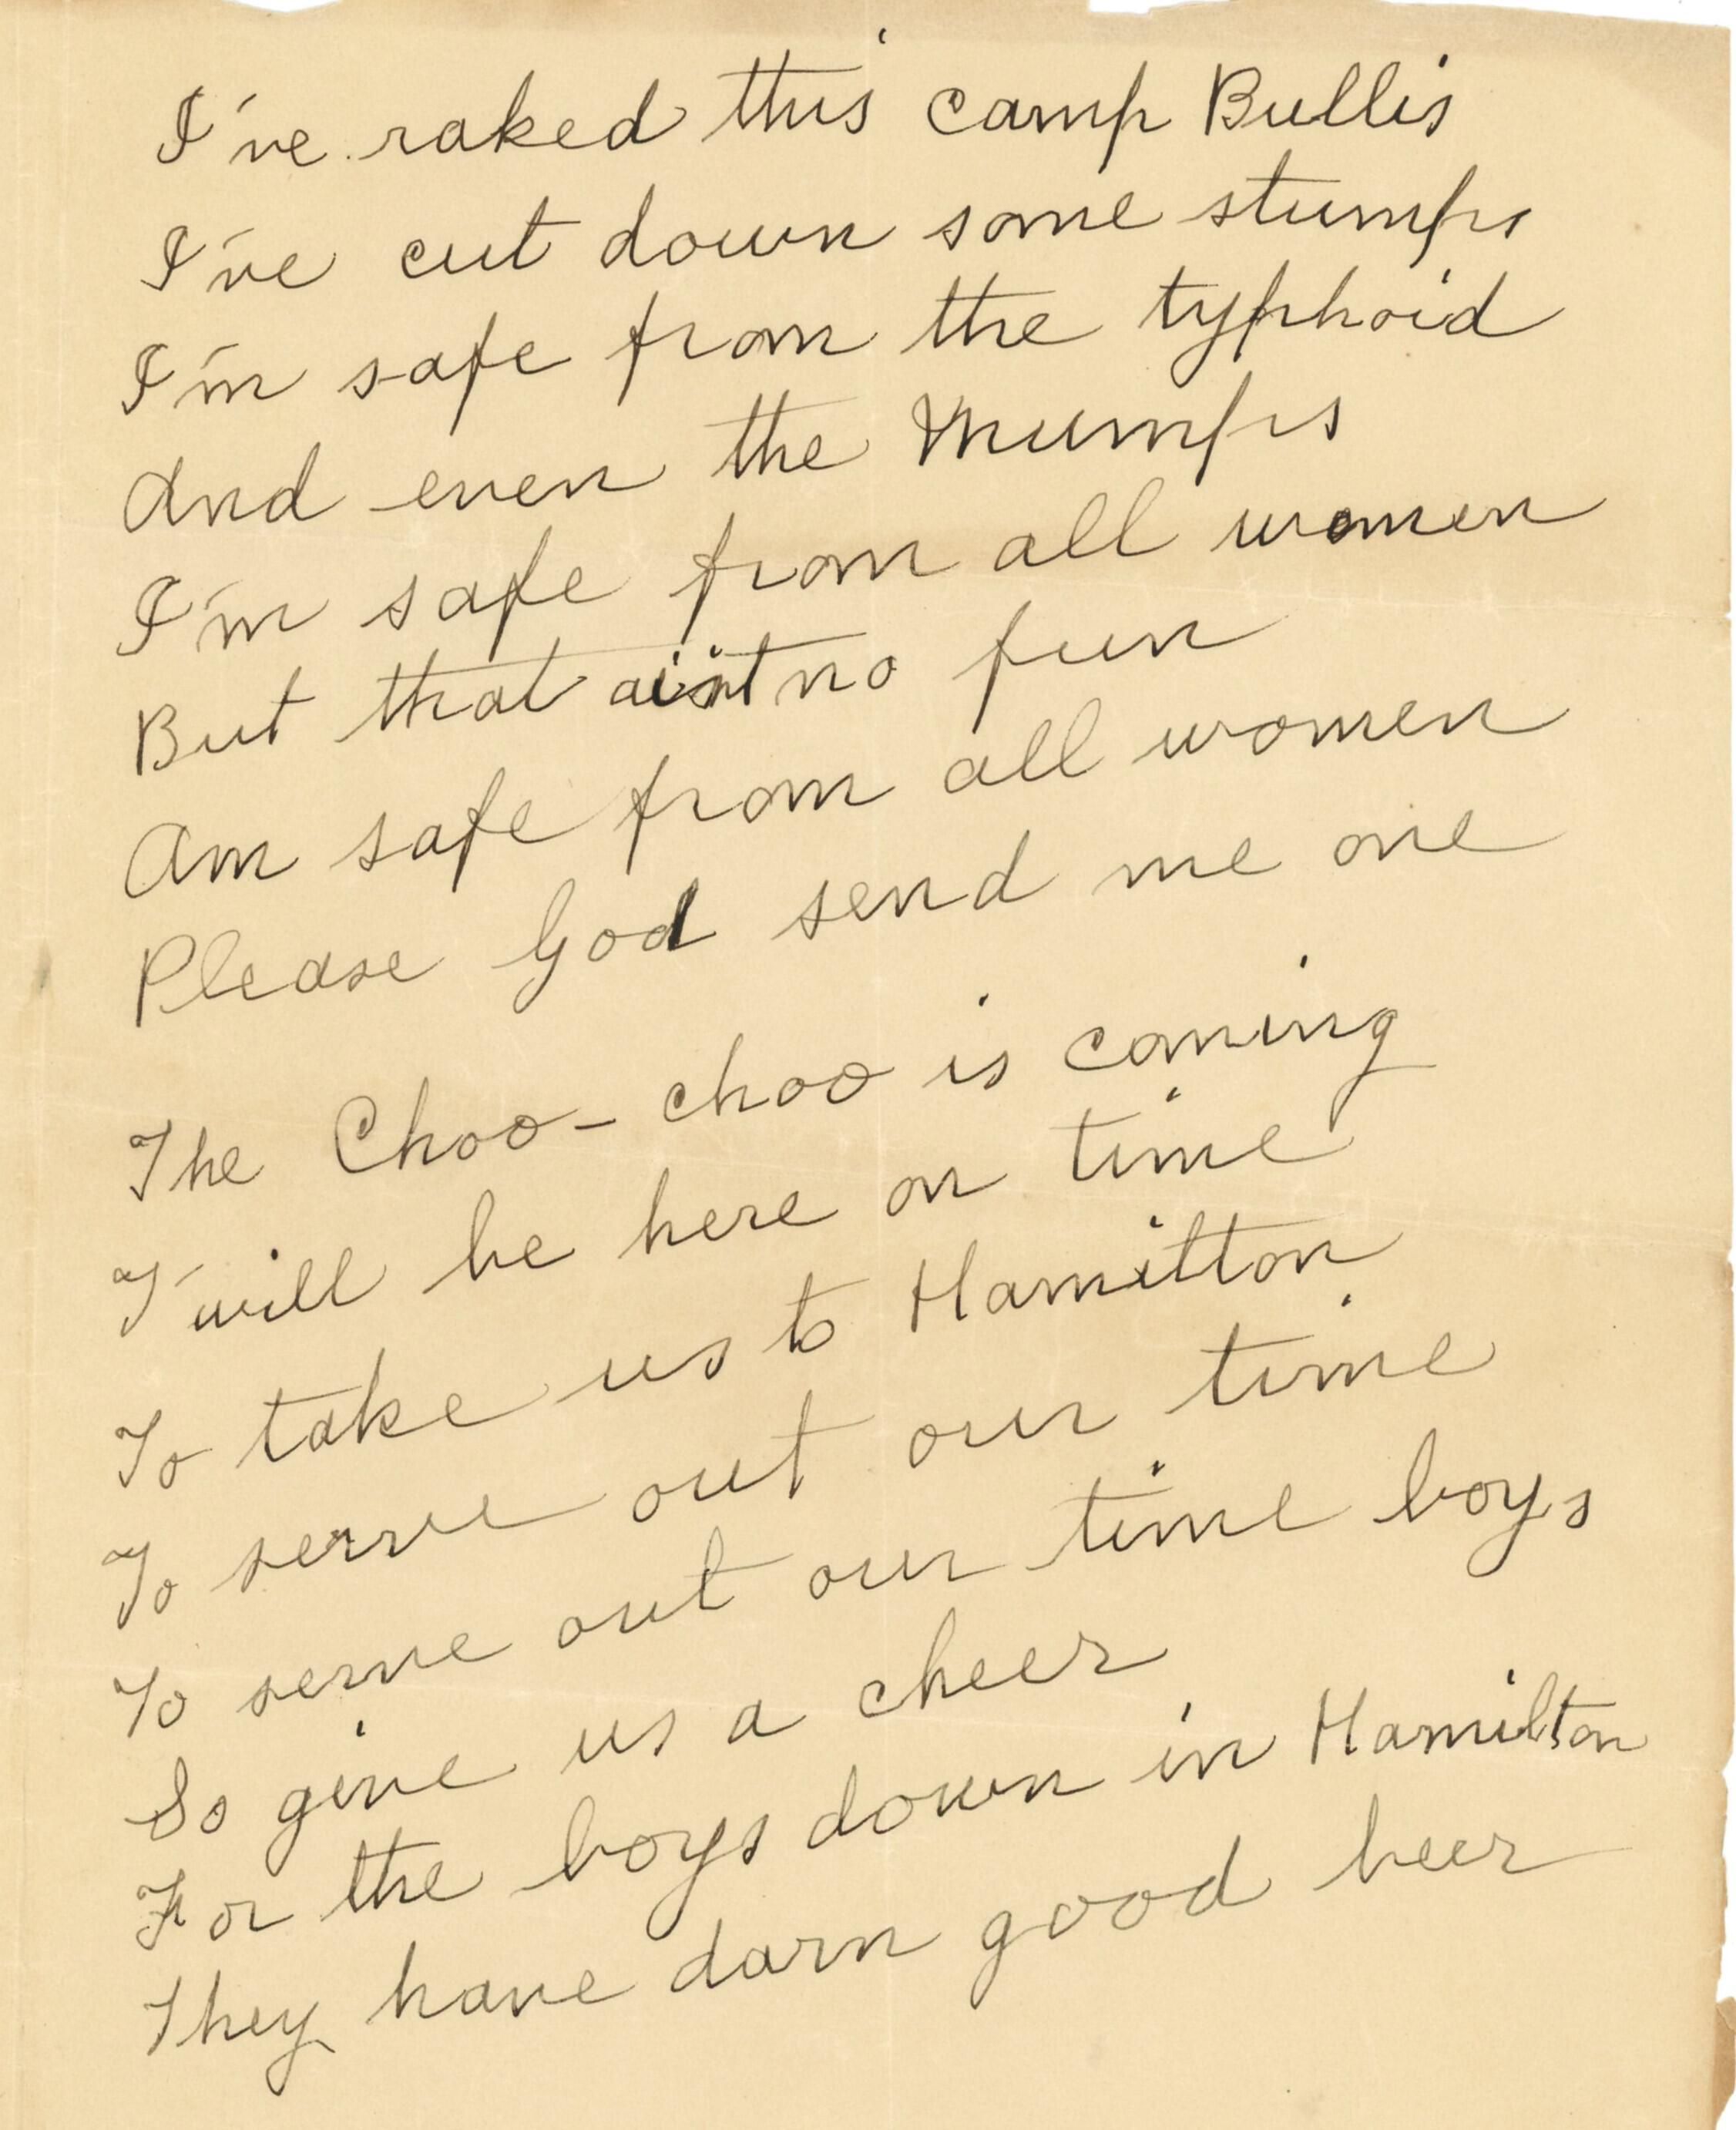 I've raked this camp Bullis
I've cut down some stumps
I'm safe from the typhoid
And even the Mumps
I'm safe from all women
But that ain't no fun
Am safe from all women
Please God send me one
The Choo-choo is coming
T'will be here on time
To take us to Hamilton
To serve out our time
To serve out our time boys
So give us a cheer
For the boys down in Hamilton
They have darn good beer